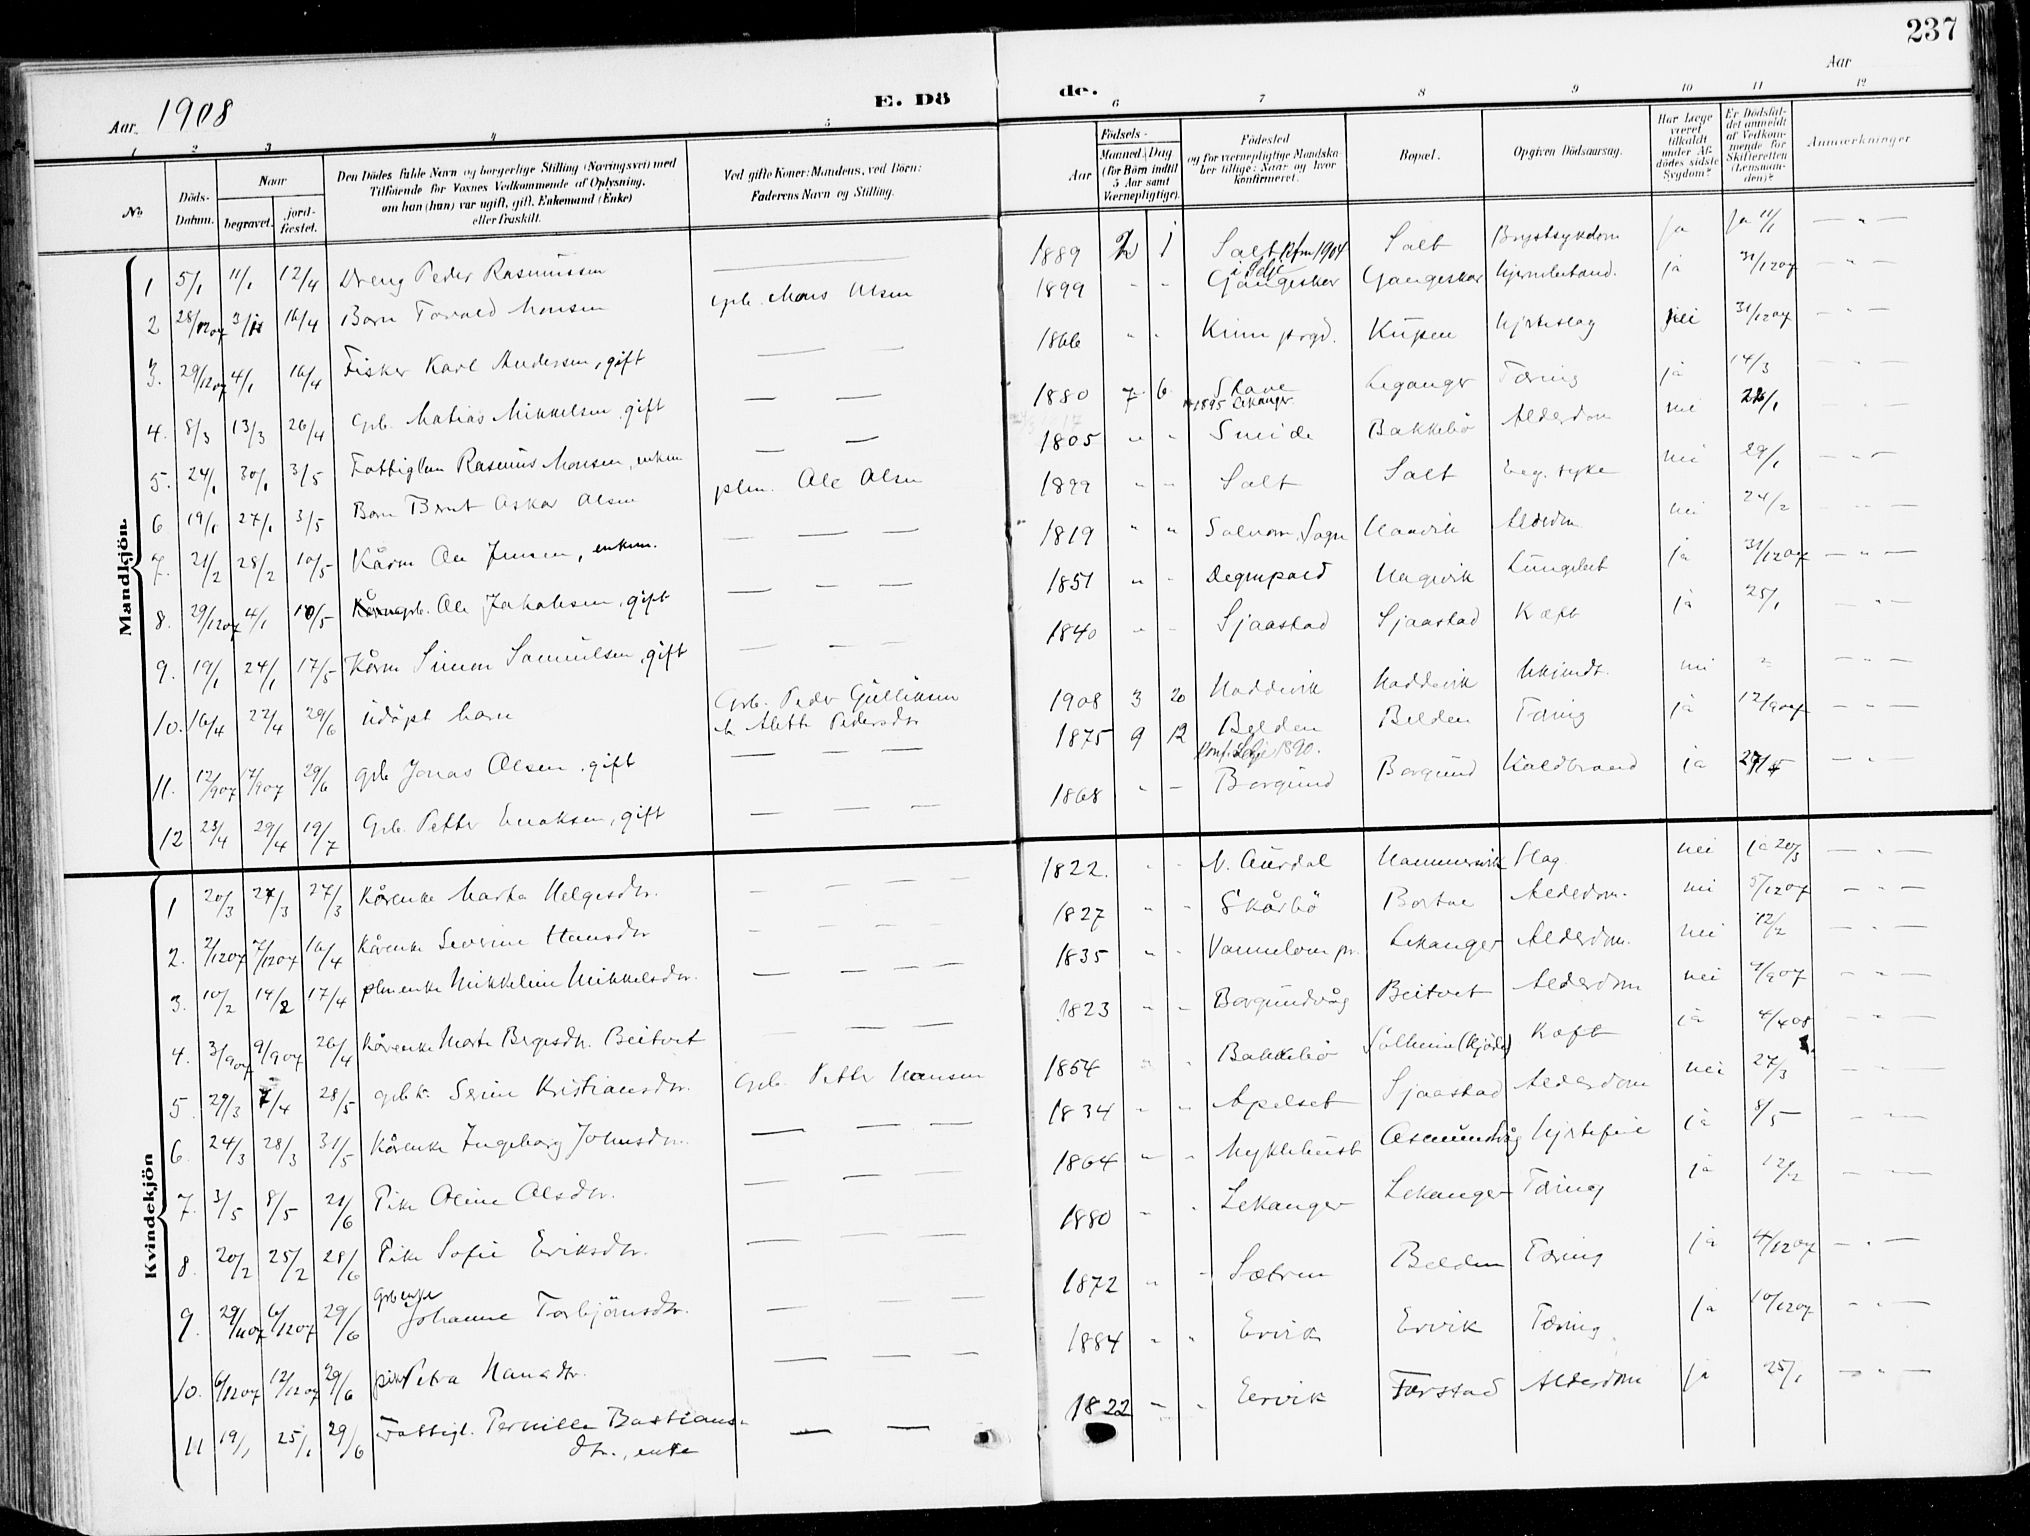 237
Aar 1908
E. Dö
de.
Aar
1 2 3 4 5 6 7 8 9 10 11 12
No
Döds-Datum.
Naar
begravet.
jord-fæstet.
Den Dödes fulde Navn og borgerlige Stilling (Næringsvei) med
Tilföiende for Voxnes Vedkommende af Oplysning,
om han (hun) var ugift, gift, Enkemand (Enke)
eller fraskilt.
Ved gifte Koner: Mandens, ved Börn:
Faderens Navn og Stilling.
Födsels-
Aar
Maaned. Dag
(for Börn indtil
5 Aar samt
Værnepligtige).
Födested
og for værnepligtige Mandska-
ber tillige: Naar og hvor
konfirmeret.
Bopæl.
Opgiven Dödsaarsag.
Har Læge
været
tilkaldt
under Af-
dödes sidste
Sygdom?
Er Dödsfal-
det anmeldt
af Vedkom-
mende for
Skifteretten
(Lensman-
den)?
Anmærkninger
Mandkjön.
1 5/1 11/1 12/4 Dreng Peder Rasmussen — 1889 2 1 Salt Kfm 1904 i Selje Salt Brystsykdom ja ja 11/1 — " —
2 28/1207 3/1 16/4 Barn Torvald Monsen grb. Mons Olsen 1899 " " Gangeskar Gangeskar Hjernebetænd. ja 31/1207 — " —
3. 29/1207 4/1 16/4 Fisker Karl Andersen, gift — — 1866 " " Kinn prgd. Kupen Hjerteslag nei 31/1207 — " —
4. 8/3 13/3 26/4 Grb. Matias Mikkelsen, gift — — 1880 7 6 Stave 1895 Lekanger Leganger Tæring ja 14/3 — " —
5. 24/1 30/1 3/5 Fattiglem Rasmus Monsen, enkem — — 1805 " " Smide Bakkebö Alderdom nei 28/1
6 19/1 27/1 3/5 Barn Bernt Oskar Olsen plm. Ole Olsen 1899 " " Salt Salt Eng. syke nei 29/1 — " —
7. 21/2 28/2 10/5 Kårm Ole Jensen, enkem. — — — 1819 " " Solvorn, Sogn Hoavik Alderdom nei 24/2 — " —
8. 29/1207 4/1 10/5 grb. Ole Jakobsen, gift — — — 1851 " " Degnepold Hagevik Lungebet ja 31/1207 — " —
9. 19/1 24/1 17/5 Kårm Simon Samuelsen, gift — — — 1840 " " Sjaastad Sjaastad Kræft ja 25/1 — " —
10. 16/4 22/4 29/6 Udöpt barn Grb. Peder Gulliksen
h. Alette Pedersdtr 1908 3 20 Hoddevik Hoddevik Ukjendt. nei " — " —
11. 12/907 17/907 29/6 grb Jonas Olsen, gift — — — 1875 9 12 Belden Konf. Selje 1890. Belden Tæring ja 12/907 — " —
12 23/4 29/4 19/7 Grb. Petter Enoksen, gift — — — 1868 " — Borgund Borgund Koldbrand ja — " —
Kvindekjön
1 20/3 27/3 27/3 Kårenke Marta Helgesdtr. — — — 1822. " " N. Aurdal Hammersvik Slag. nei ja 20/3 — " —
2. 2/1207 7/1207 16/4 Kårenke Severine Hansdtr — — — 1827 " " Skårbö Bortne Alderdom. nei 5/1207 — " —
3. 10/2 14/2 17/4 plmenke Mikkeline Mikkelsdtr. — — — 1835 " " Vannelven pr. Lekanger Alderdom. nei 12/2 — " —
4. 3/907 9/907 26/4 Kårenke Marte Bergesdtr. Beitvet — — — 1823 " " Borgundvåg Beitvet Alderdom nei 4/907 — " —
5. 29/3 7/4 28/5 grbk. Serine Kristiansdtr. Grb. Petter Hansen 1854 " " Bakkebö Solheim (Kjöde) Kræft ja 4/408 — " —
6. 24/3 28/3 31/5 Kårenke Ingeborg Johnsdtr. — — — 1834 " " Apelset Sjaastad Alderdom nei 27/3 — " —
7. 3/5 8/5 21/6 Pike Oline Olsdtr. — — — 1864 " " Myklebust Osmundvåg Hjertefeil ja 8/5 — " —
8. 20/2 25/2 28/6 Pike Sofie Eriksdtr. — — — 1880 " " Lekanger Lekanger Tæring ja 12/2 — " —
9. 29/1107 6/1207 29/6 Grbenke Johanne Torbjörnsdtr. — — — 1872 " " Sætren Belden Tæring ja 4/1207 — " —
10. 6/1207 12/1207 29/6 pike Petra Hansdtr. — — — 1884 " " Ervik Ervik Tæring. ja 10/1207 — " —
11 19/1 25/1 29/6 Fattigl. Pernille Bastians-
dtr., enke — — 1822 " " Ervik Færstad Alderdom ja 25/1 — " —